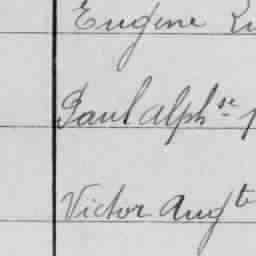 Eugène
Paul alphse
Victor Augte